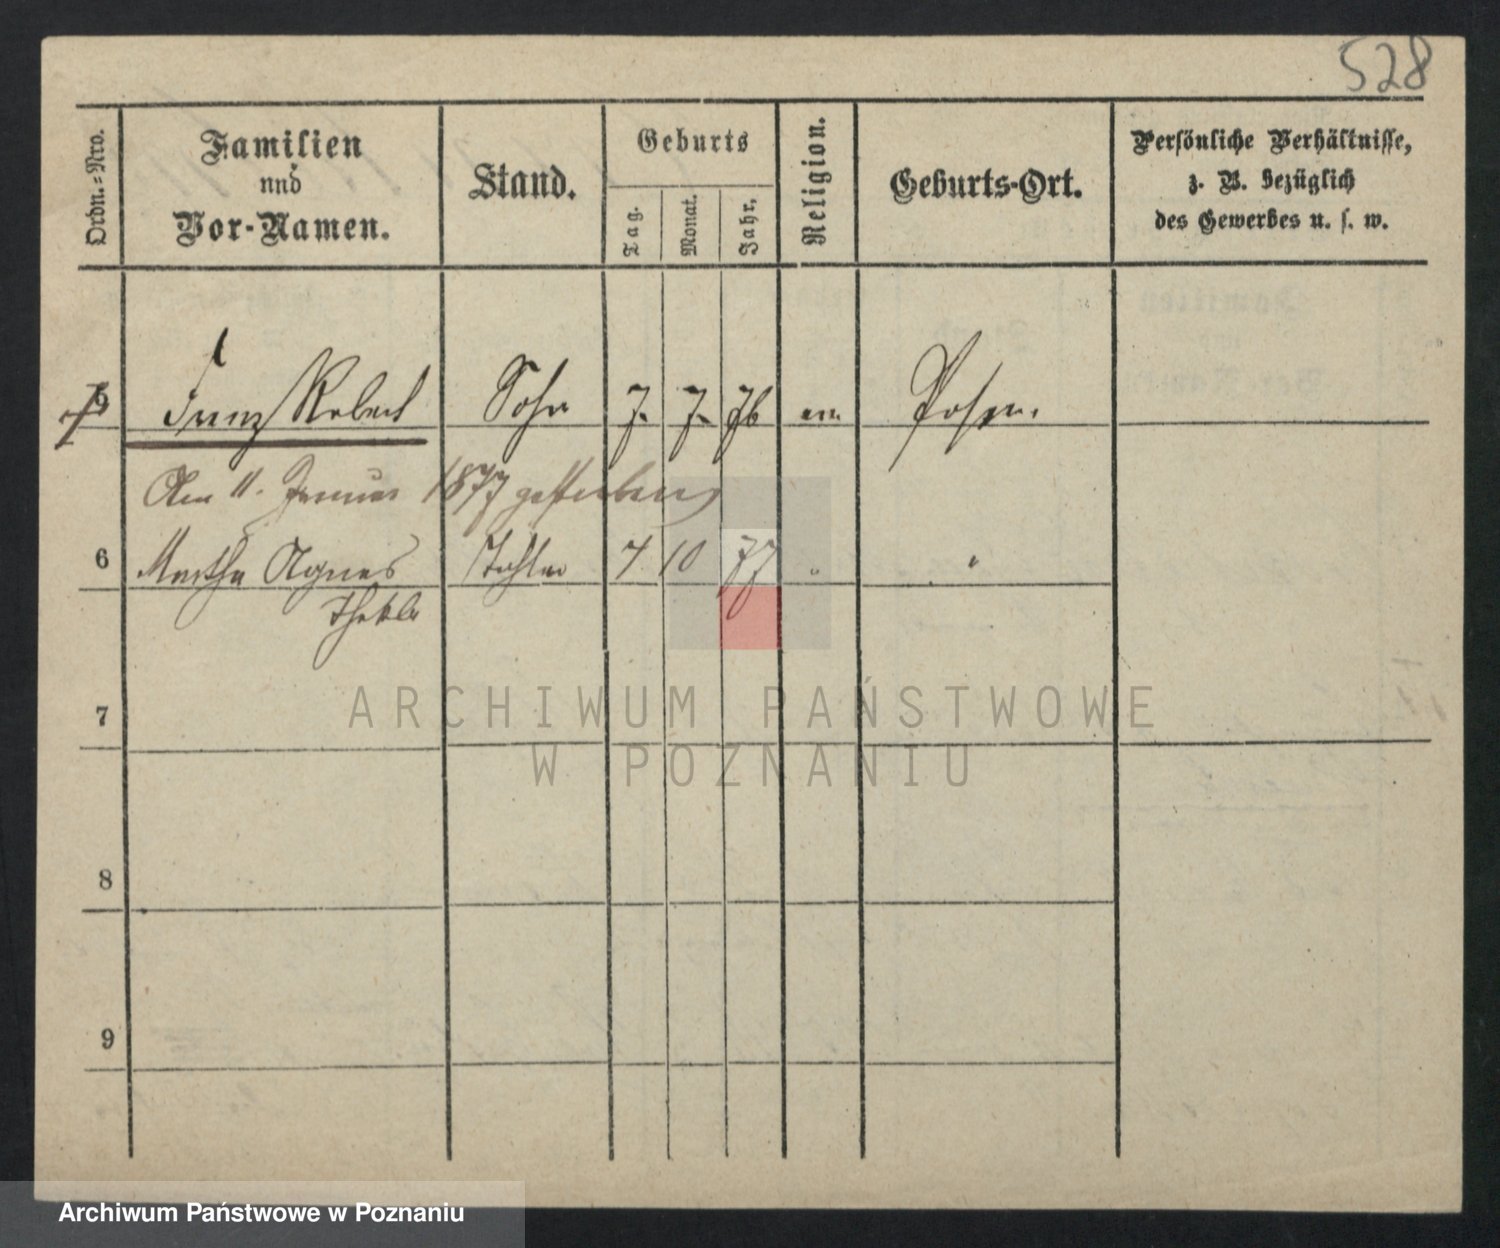 528
Ordn.-Nro.
Familien
und
Vor-Namen.
Stand.
Geburts
Tag.
Monat.
Jahr.
Religion.
Geburts-Ort.
Persönliche Verhältnisse,
z. B. bezüglich
des Gewerbes u. s. w.
5 Franz Robert Sohn 7. 7. 76 ev Posen.
Am 11. Januar 1877 gestorben
6 Martha Agnes Tochter 7 10 77 " "
Thekla
7
8
9
ARCHIWUM PAŃSTWOWE
W POZNANIU
Archiwum Państwowe w Poznaniu